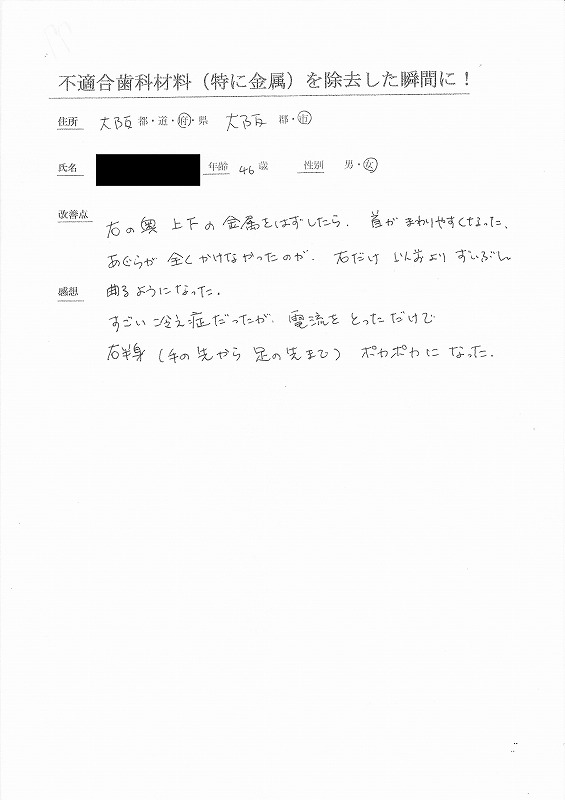 不適合歯科材料（特に金属）を除去した瞬間に！
住所 大阪 都・道・府・県 大阪 郡・市
氏名 年齢 46 歳 性別 男・女
改善点
右の奥 上下の金属をはずしたら、首がまわりやすくなった、
あぐらが全くかけなかったのが、右だけ いぜんより ずいぶん
感想 曲るようになった．
すごい冷え症だったが、電流をとっただけで
右半身（手の先から足の先まで）ポカポカになった．